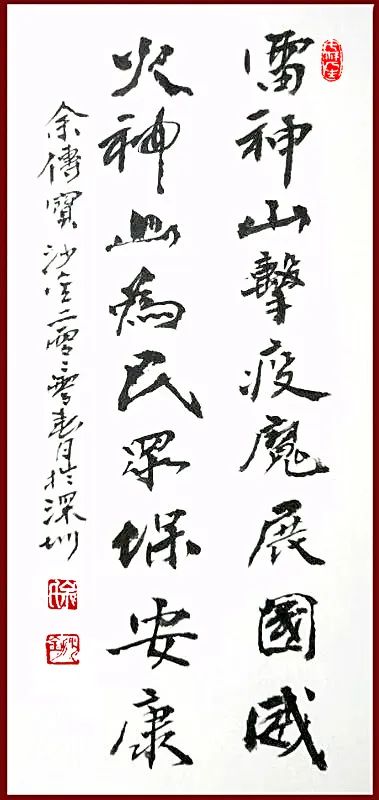 雷神山擊疫魔展國威
火神山為民眾保安康
余傳寶 沙金二零二零春月於深圳